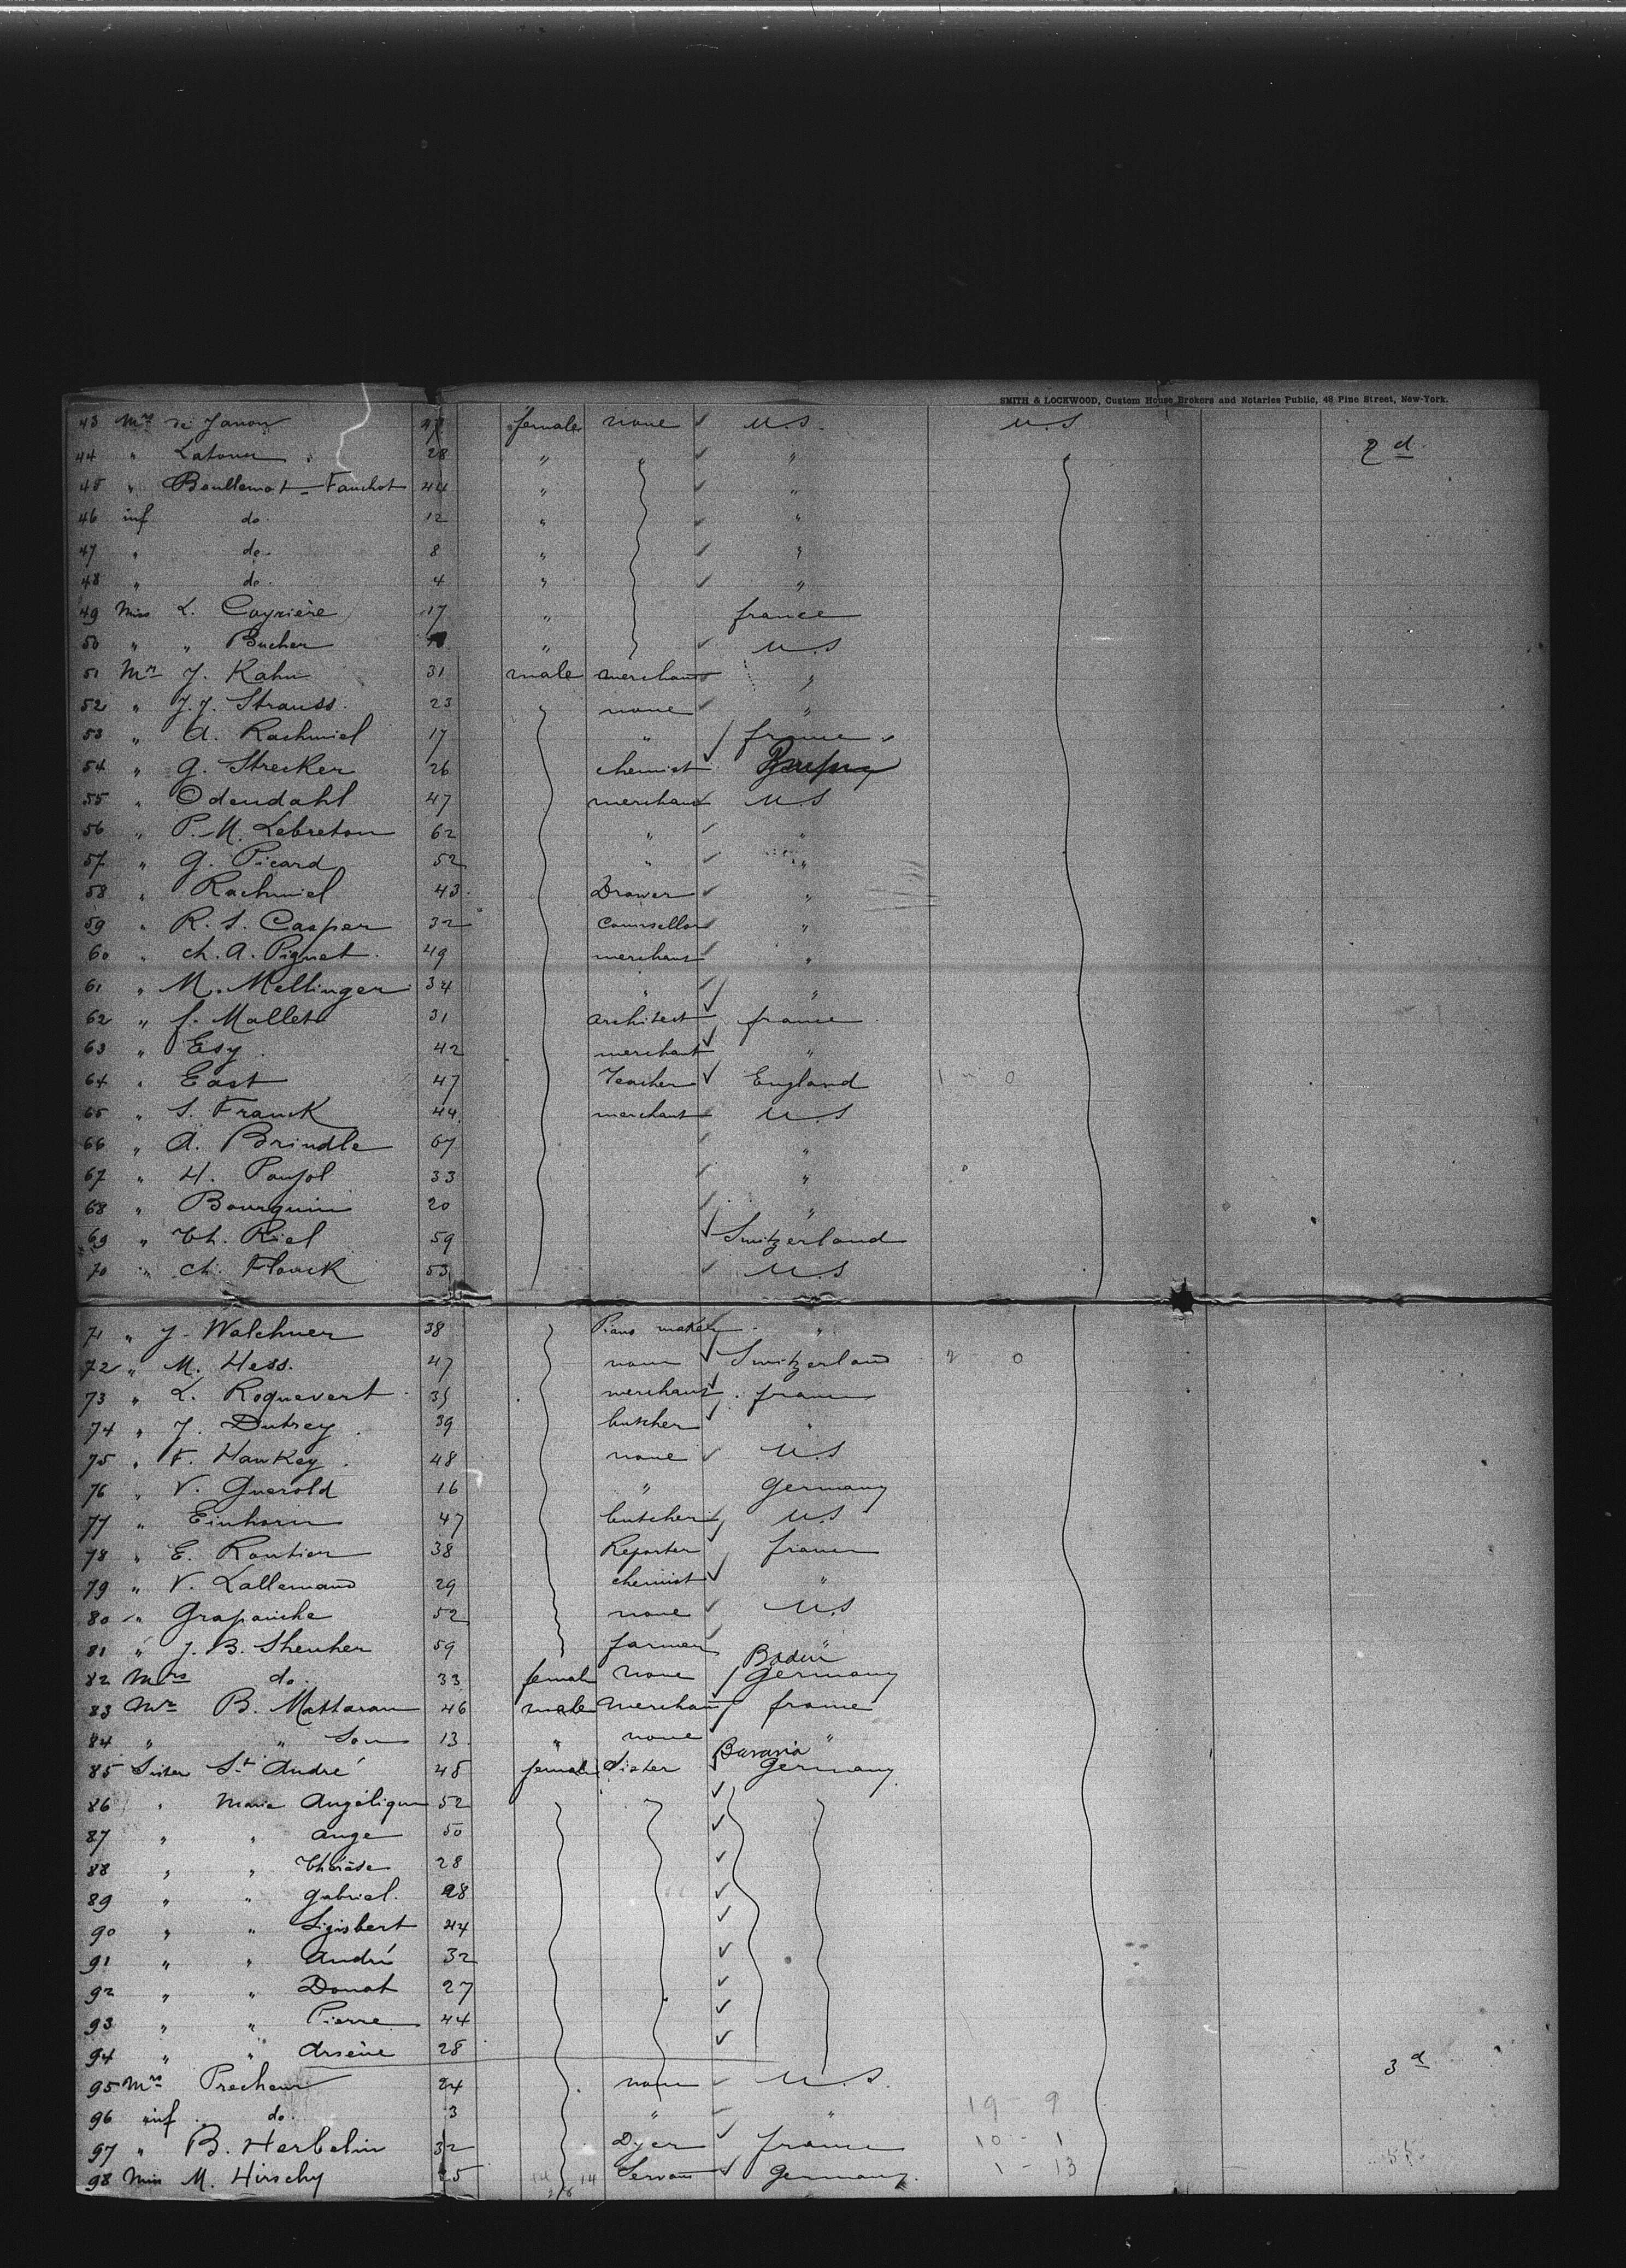 SMITH & LOCKWOOD, Custom House Brokers and Notaries Public, 48 Pine Street, New-York.
43 Mrs de Janon female none U.S. U.S
44 " Latour 28 " " " 2d
45 " Boullemot-Fauchot 44 " "
46 inf do. 12 " "
47 " do. 8 " "
48 " do. 4 " "
49 Miss L. Cayrière 17 " france
50 " " Bucher " U.S
51 Mr J. Kahn 31 male merchant "
52 " J.J. Strauss. 23 none "
53 " A. Rachmiel 17 " france
54 " G. Strecker 26 chemist
55 " Odendahl 47 merchant U.S
56 " P.M. Lebreton 62 " "
57 " G. Picard 52 " "
58 " Rachmiel 43 Drawer "
59 " R.S. Casper 32 Counsellor "
60 " Ch. A. Piguet 49 merchant "
61 " M. Mellinger 34 " "
62 " f. Mallet 31 architect france
63 " Esy 42 merchant "
64 " East 47 Teacher England 1 - 0
65 " S. Franck 44 merchant U.S
66 " A. Brindle 67 "
67 " H. Poujol 33 "
68 " Bourquin 20 "
69 " Th. Riel 59 Switzerland
70 " Ch. Flouck 53 U.S
71 " J. Walchner 38 Piano maker "
72 " M. Hess. 47 none Switzerland 2 - 0
73 " L. Roquevert 35 merchant france
74 " J. Dutrey 39 butcher "
75 " F. Hankey 48 none U.S
76 " V. Guerold 16 " Germany
77 " Einhorn 47 butcher U.S
78 " E. Routier 38 Reporter france
79 " V. Lallemand 29 chemist "
80 " Grapanche 52 none U.S
81 " J.B. Shenher 59 farmer "
82 Mrs do. 33 female none Baden Germany
83 Mr B. Mattaran 46 male merchant france
84 " " Son 13 " none "
85 Sister St André 48 female Sister Bavaria Germany
86 " Marie Angélique 52
87 " " Ange 50
88 " " Thérèse 28
89 " " Gabriel. 28
90 " " Sigisbert 44
91 " " André 32
92 " " Donat 27
93 " " Pierre 44
94 " " Arsène 28
95 Mrs Precheur 24 none U.S. 3d
96 inf do. 3 " " 19 - 9
97 " B. Herbelin 32 Dyer france 10 - 1
98 Miss M. Hirschy 25 14 Servant Germany. 1 - 13 55